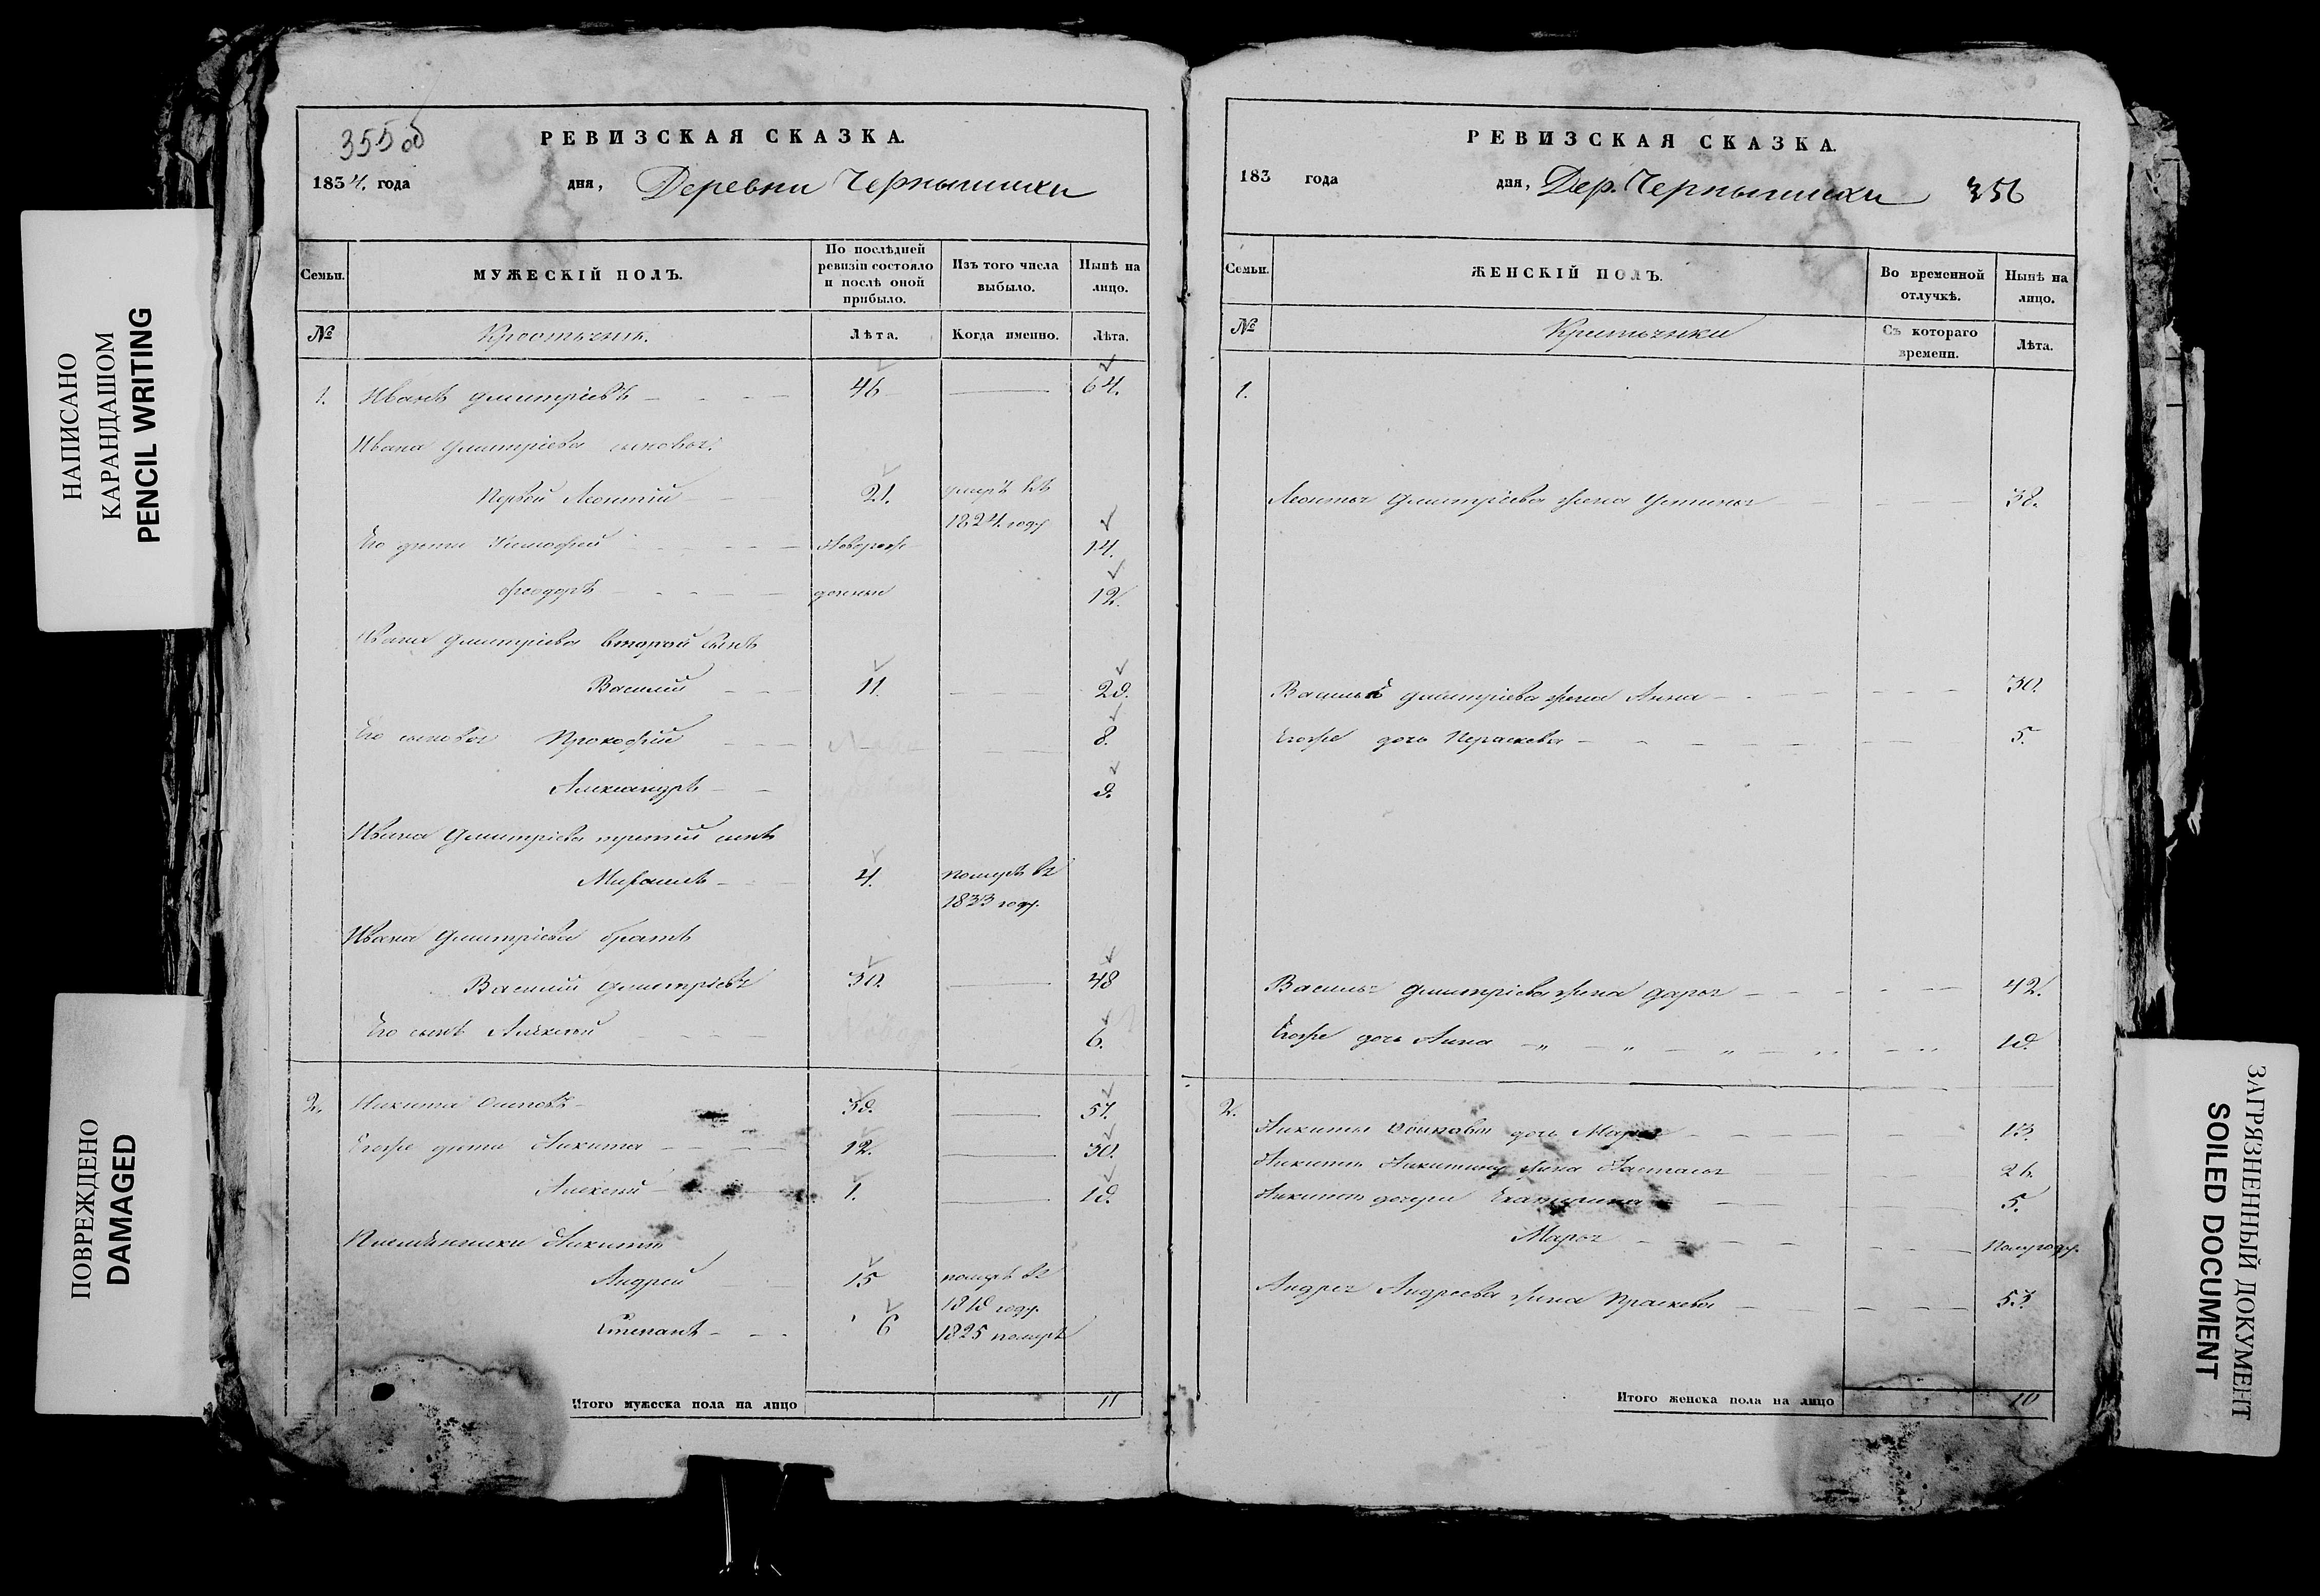 НАПИСАНО
КАРАНДАШОМ
PENCIL WRITING
ПОВРЕЖДЕНО
DAMAGED
355 об
РЕВИЗСКАЯ СКАЗКА.
1834. года дня, Деревни Чернышихи
Семьи.
МУЖЕСКІЙ ПОЛЪ.
По послѣдней
ревизіи состояло
и послѣ оной
прибыло.
Изъ того числа
выбыло.
Нынѣ на
лицо.
№
Лѣта.
Когда именно.
Лѣта.
1. Иванъ Дмитріевъ 46 64.
Ивана Дмитріева сыновья:
Первой Леонтій 21. умеръ въ
1824. году
Его дети Тимофей новорож 14.
Феодоръ денные 12.
Ивана Дмитріева второй сынъ
Василий 11. 29.
Его сыновья Прокофий 8.
Александръ 9.
Ивана Дмитріева третий сынъ
4. померъ въ
1833 году.
Ивана Дмитріева братъ
Василий Дмитріевъ 30. 48
Его сынъ Алексей 6.
2. Никита Осиповъ 39. 57.
Егоже дети Никита 12. 30.
Алексей 1. 19.
Племянники Никиты
Андрей 15 померъ въ
1819 году
Степанъ 6 1825 померъ
Итого мужеска пола на лицо 11
РЕВИЗСКАЯ СКАЗКА.
183 года дня, Дер. Чернышихи 356
Семьи.
ЖЕНСКІЙ ПОЛЪ.
Во временной
отлучкѣ.
Нынѣ на
лицо.
№
Съ котораго
времени.
Лѣта.
1.
Леонтья Дмитріева жена Устинья 38.
Василья Дмитріева жена Анна 30.
Егоже дочь Пераскева 5.
Василья Дмитріева жена Дарья 42.
Егоже дочь Анна 19.
2.
Никиты Осипова дочь Марья 13.
Никиты Никитина жена Настасья 26.
Никиты дочери Екатерина 5.
Марья полугоду.
Андрея Андреева жена Праскева 53.
Итого женска пола на лицо 10
ЗАГРЯЗНЕННЫЙ ДОКУМЕНТ
SOILED DOCUMENT